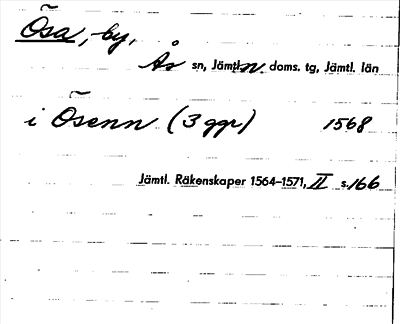 Ösa, by,
Ås sn, Jämtl. n. doms. tg, Jämtl. län
i Ösenn (3 ggr) 1568
Jämtl. Räkenskaper 1564–1571, II s. 166